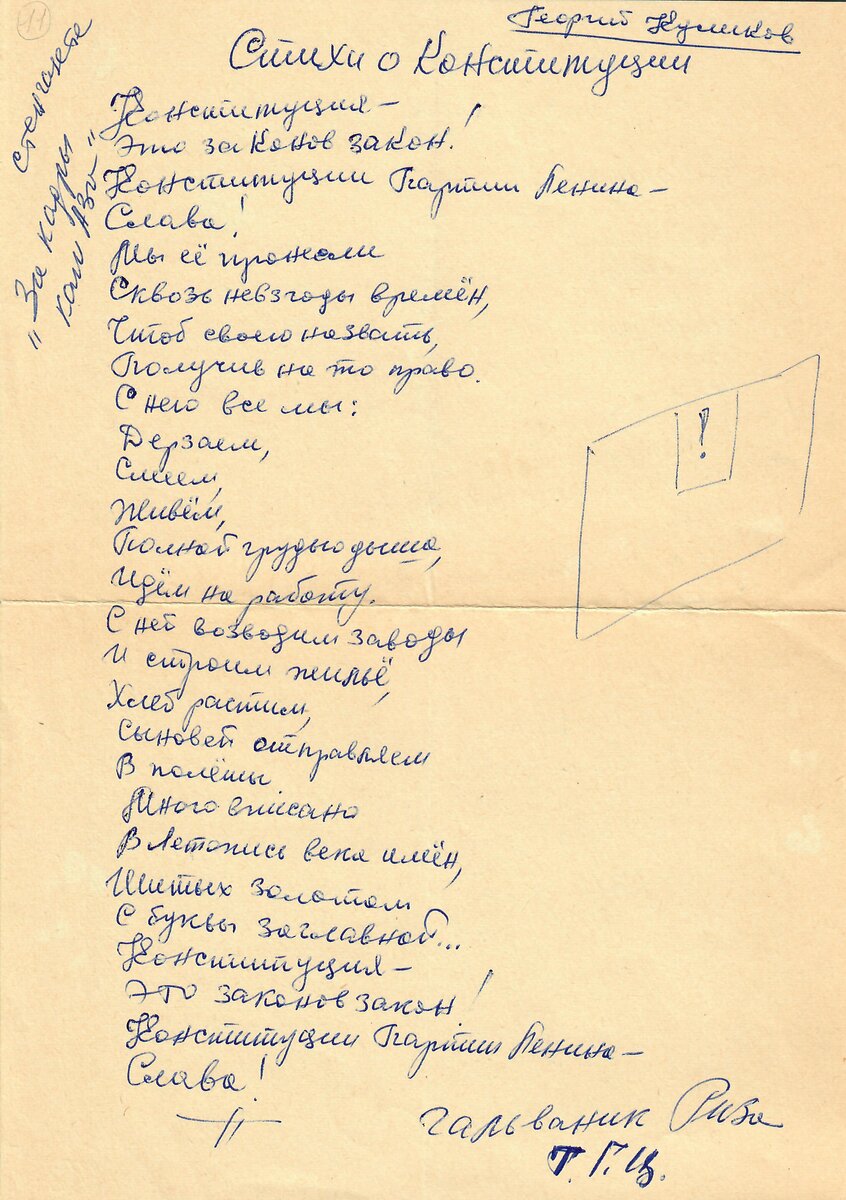 11
Георгий Куликов
Стихи о Конституции
стенгазете
"За кадры
Конституция –
Это законов закон!
Конституции Партии Ленина –
Слава!
Мы её пронесли
Сквозь невзгоды времён,
Чтоб своею назвать,
Получив на то право.
С него все мы:
Дерзаем,
Смеем,
Живём,
Полной грудью дыша,
Идём на работу.
С ней возводим заводы
И строим жильё,
Хлеб растим,
Сыновей отправляем
В полёты
Много вписано
В Летопись века имён,
Шитых золотом
С буквы заглавной...
Конституция –
Это законов закон!
Конституции Партии Ленина –
Слава!
!
гальваник
Т.Г.Ц.